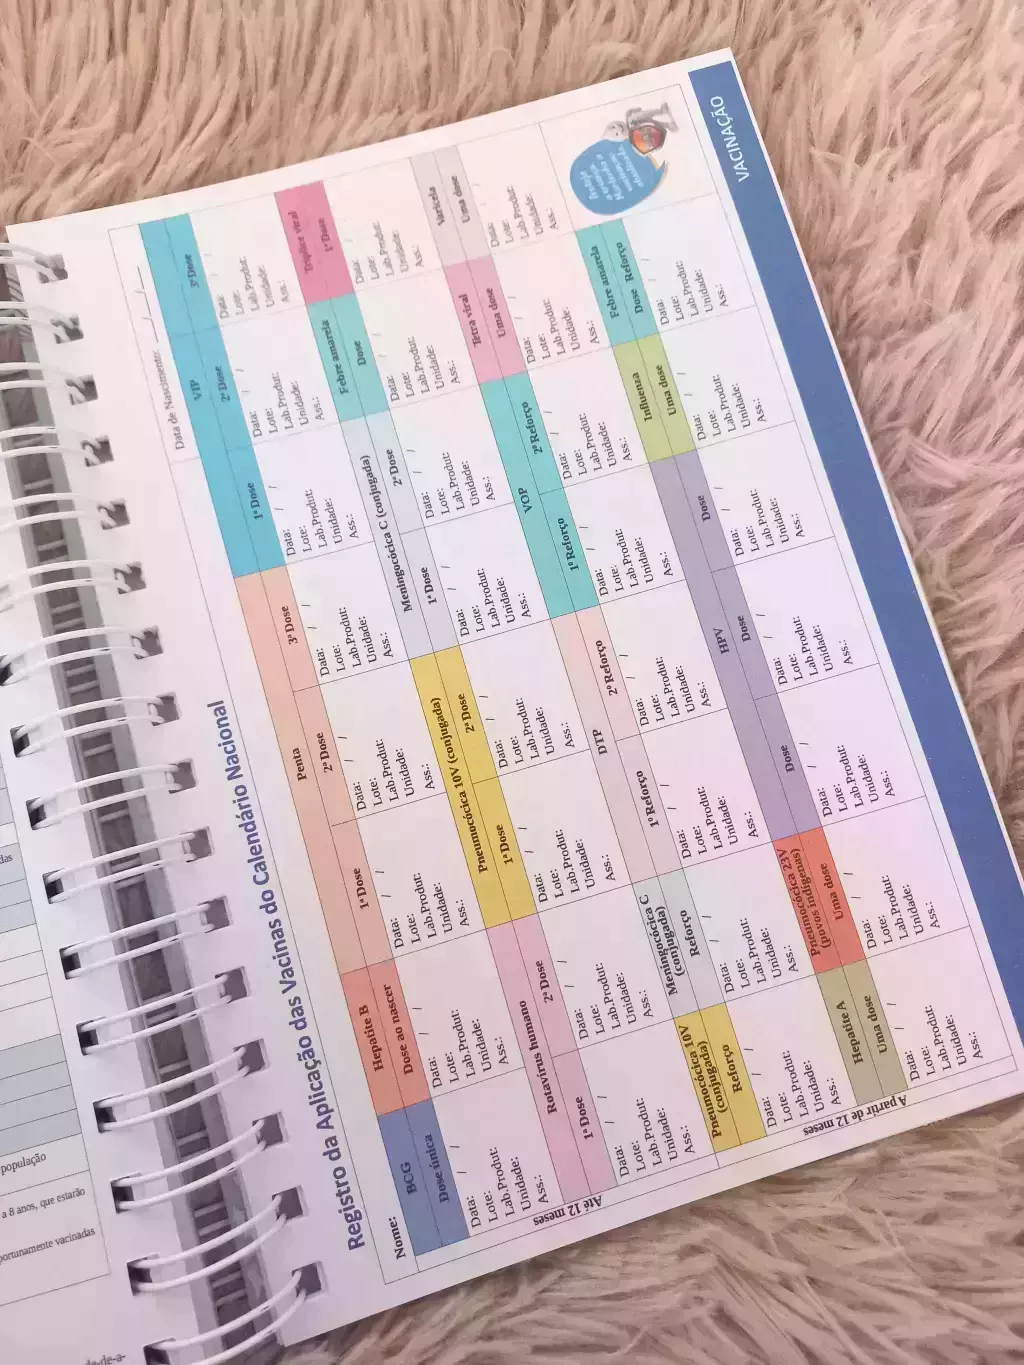 Registro da Aplicação das Vacinas do Calendário Nacional
Nome:
Data de Nascimento: / /
BCG
Hepatite B
Penta
VIP
Dose única
Dose ao nascer
1ª Dose
2ª Dose
3ª Dose
1ª Dose
2ª Dose
3ª Dose
Data: / /
Lote:
Lab.Produt:
Unidade:
Ass.:
Data: / /
Lote:
Lab.Produt:
Unidade:
Ass.:
Data: / /
Lote:
Lab.Produt:
Unidade:
Ass.:
Data: / /
Lote:
Lab.Produt:
Unidade:
Ass.:
Data: / /
Lote:
Lab.Produt:
Unidade:
Ass.:
Data: / /
Lote:
Lab.Produt:
Unidade:
Ass.:
Data: / /
Lote:
Lab.Produt:
Unidade:
Ass.:
Data: / /
Lote:
Lab.Produt:
Unidade:
Ass.:
Até 12 meses
Rotavírus humano
Pneumocócica 10V (conjugada)
Meningocócica C (conjugada)
Febre amarela
Tríplice viral
1ª Dose
2ª Dose
1ª Dose
2ª Dose
1ª Dose
2ª Dose
Dose
1ª Dose
Data: / /
Lote:
Lab.Produt:
Unidade:
Ass.:
Data: / /
Lote:
Lab.Produt:
Unidade:
Ass.:
Data: / /
Lote:
Lab.Produt:
Unidade:
Ass.:
Data: / /
Lote:
Lab.Produt:
Unidade:
Ass.:
Data: / /
Lote:
Lab.Produt:
Unidade:
Ass.:
Data: / /
Lote:
Lab.Produt:
Unidade:
Ass.:
Data: / /
Lote:
Lab.Produt:
Unidade:
Ass.:
Data: / /
Lote:
Lab.Produt:
Unidade:
Ass.:
A partir de 12 meses
Pneumocócica 10V
(conjugada)
Meningocócica C
(conjugada)
DTP
VOP
Tetra viral
Varicela
Reforço
Reforço
1º Reforço
2º Reforço
1º Reforço
2º Reforço
Uma dose
Uma dose
Data: / /
Lote:
Lab.Produt:
Unidade:
Ass.:
Data: / /
Lote:
Lab.Produt:
Unidade:
Ass.:
Data: / /
Lote:
Lab.Produt:
Unidade:
Ass.:
Data: / /
Lote:
Lab.Produt:
Unidade:
Ass.:
Data: / /
Lote:
Lab.Produt:
Unidade:
Ass.:
Data: / /
Lote:
Lab.Produt:
Unidade:
Ass.:
Data: / /
Lote:
Lab.Produt:
Unidade:
Ass.:
Data: / /
Lote:
Lab.Produt:
Unidade:
Ass.:
Hepatite A
Pneumocócica 23V
(povos indígenas)
HPV
Influenza
Febre amarela
Uma dose
Uma dose
Dose
Dose
Dose
Uma dose
Dose Reforço
Data: / /
Lote:
Lab.Produt:
Unidade:
Ass.:
Data: / /
Lote:
Lab.Produt:
Unidade:
Ass.:
Data: / /
Lote:
Lab.Produt:
Unidade:
Ass.:
Data: / /
Lote:
Lab.Produt:
Unidade:
Ass.:
Data: / /
Lote:
Lab.Produt:
Unidade:
Ass.:
Data: / /
Lote:
Lab.Produt:
Unidade:
Ass.:
Data: / /
Lote:
Lab.Produt:
Unidade:
Ass.:
VACINAÇÃO
população
a 8 anos, que estarão
vacinadas